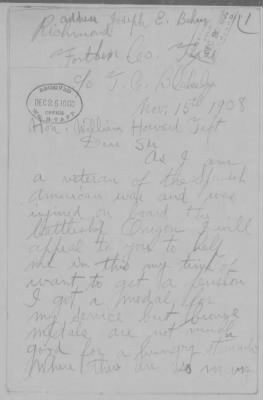 address Joseph E.
Richmond
Fort Ben Co. Tex
c/o T. C. B
Nov, 15th 1908
RECEIVED
DEC 2
OFFICE
Hon. William Howard Taft
Dear Sir
As I am
a veteran of the Spanish
American war and was
injured on board the
battleship Oregon I will
appeal to you to help
me in this my time of
want to get a pension
I got a medal for
my service but bronze
medals are not much
good for a hungry stomach
Where there are so many